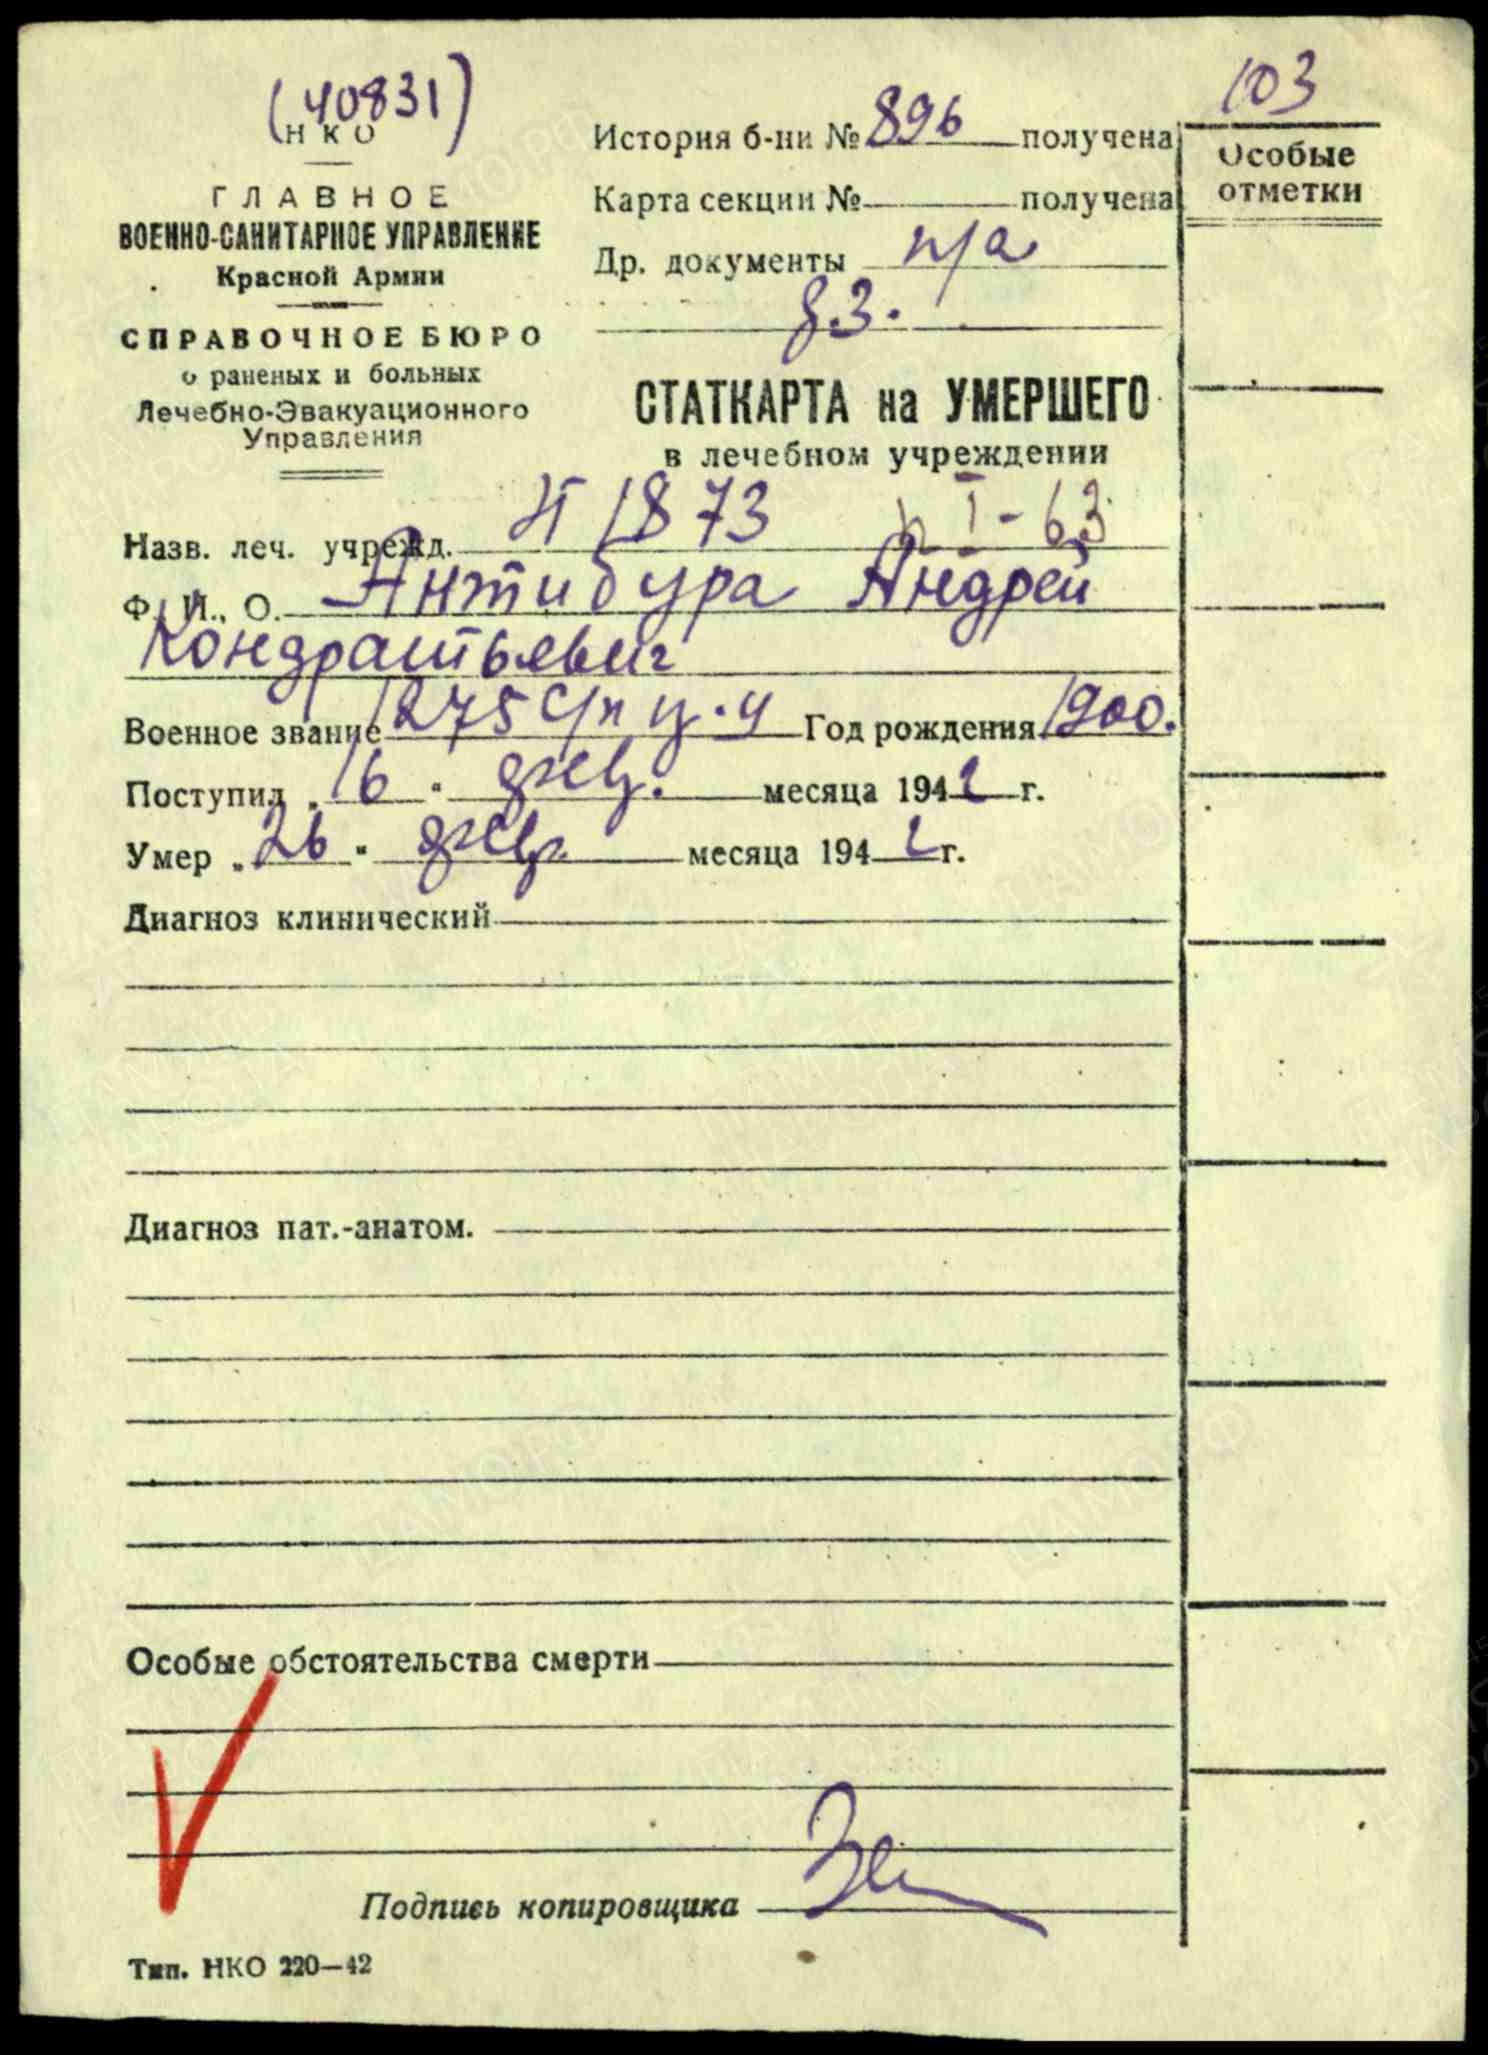 (40831)
НКО
ГЛАВНОЕ
ВОЕННО-САНИТАРНОЕ УПРАВЛЕНИЕ
Красной Армии
СПРАВОЧНОЕ БЮРО
о раненых и больных
Лечебно-Эвакуационного
Управления
103
Особые
отметки
История б-ни № 896 получена
Карта секции № получена
Др. документы п/а
д.з.
СТАТКАРТА на УМЕРШЕГО
в лечебном учреждении
Назв. леч. учрежд. 1873 I-63
Ф., И., О. Антибура Андрей
Кондратьевич
Военное звание 1275 с/п Год рождения 1900.
Поступил „16“ дек. месяца 1942 г.
Умер „26“ дек. месяца 1942 г.
Диагноз клинический
Диагноз пат.-анатом.
Особые обстоятельства смерти
Подпись копировщика
Тип. НКО 220—42